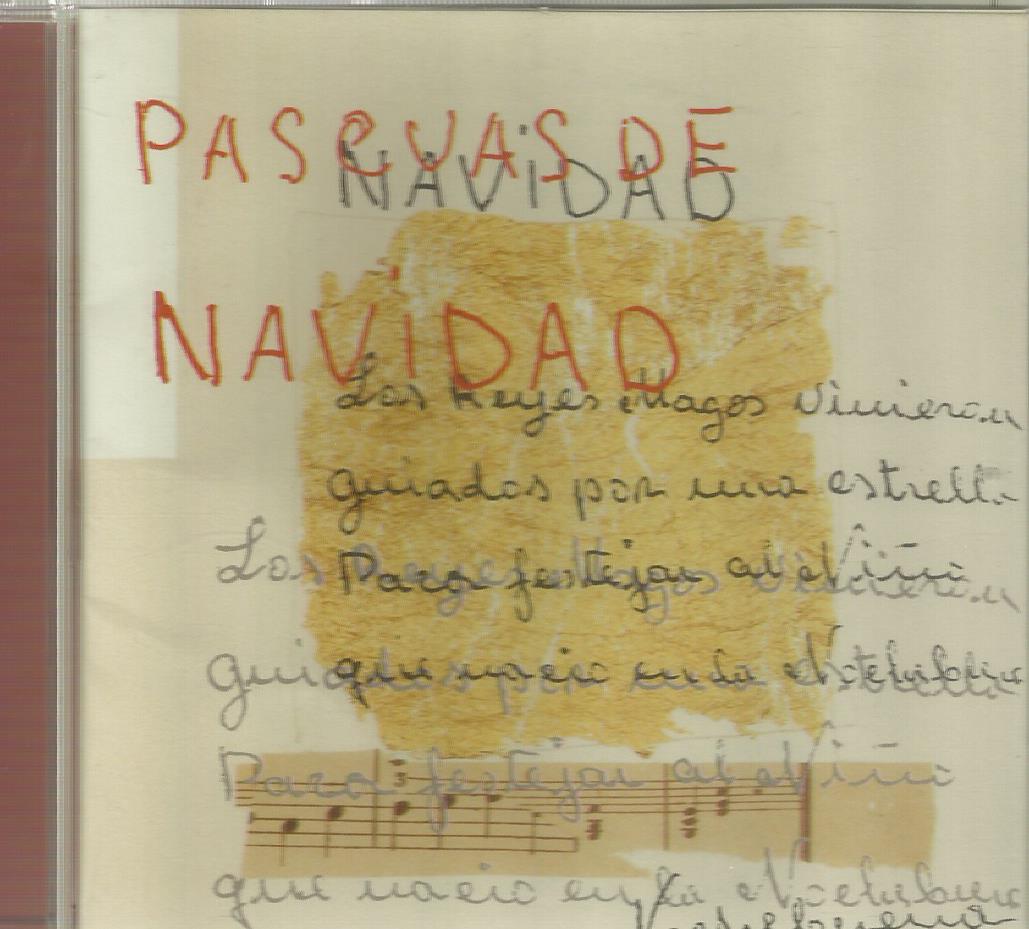 PASCUAS DE
NAVIDAD
NAVIDAD
Los Reyes Magos Vinieron
guiados por una estrella
Los Reyes Magos Vinieron
Para festejar al Niñ
guiados por una estrella
que nacio en la Nochebue
Para festejar al Niñ
que nacio en la Nochebuena